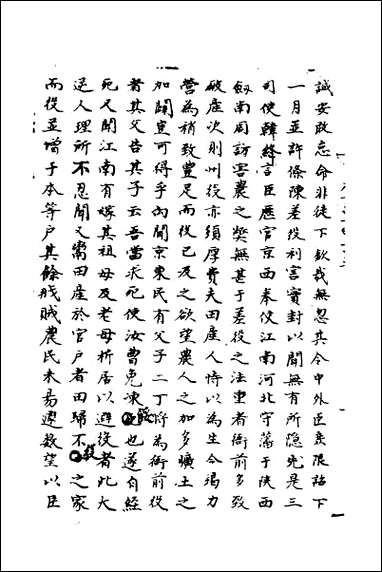 誠安敢忘命非徒下欽哉無忽其令中外臣庶限詔下
一月並許條陳差役利害實封以聞無有所隱先是三
司使韓絳言臣歷官京西奉使江南河北守藩于陝西
劒南周訪害農之弊無甚于差役之法重者衙前多致
破産次則州役亦須厚費夫田産人恃以為生今竭力
營為稍致豐足而役已及之欲望農人之加多曠土之
加闢豈可得乎向聞京東民有父子二丁將為衙前役
者其父告其子云吾當求死使汝曹免凍餒也遂自經
死又聞江南有嫁其祖母及老母析居以避役者此大
逆人理所不忍聞又鬻田産於官戶者田歸不役之家
而役並增于本等戶其餘戕賊農民未易遽數望以臣